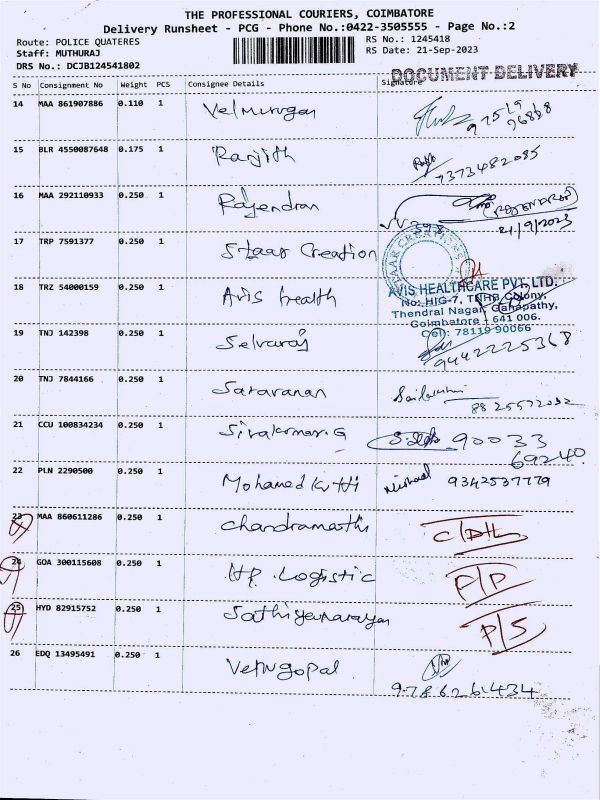 THE PROFESSIONAL COURIERS, COIMBATORE
Delivery Runsheet - PCG - Phone No.:0422-3505555 - Page No.:2
Route: POLICE QUATERES RS No.: 1245418
Staff: MUTHURAJ RS Date: 21-Sep-2023
DRS No.: DCJB124541802
DOCUMENT DELIVERY
S No Consignment No Weight PCS Consignee Details Signature
14 MAA 861907886 0.110 1 Velmurugan
15 BLR 4550087648 0.175 1 Ranjith 7373482085
16 MAA 292110933 0.250 1 Rajendran (RAJENDRAN)
21/9/2023
17 TRP 7591377 0.250 1 Staar Creation STAAR CREATIONS
18 TRZ 54000159 0.250 1 Avis health AVIS HEALTHCARE PVT. LTD.
No: HIG-7, TNHB Colony,
Thendral Nagar, Ganapathy,
Coimbatore - 641 006.
Cell: 78119 90066
19 TNJ 142398 0.250 1 Selvaraj 9442225368
20 TNJ 7844166 0.250 1 Saravanan
21 CCU 100834234 0.250 1 Sivakumar.G 90033
69240
22 PLN 2290500 0.250 1 Mohamed Kutti 9342537779
23 MAA 860611286 0.250 1 Chandramathi
24 GOA 300115608 0.250 1 HR. Logistic P/P
25 HYD 82915752 0.250 1 Sathiyanarayan P/S
26 EDQ 13495491 0.250 1 Venugopal
9786261434